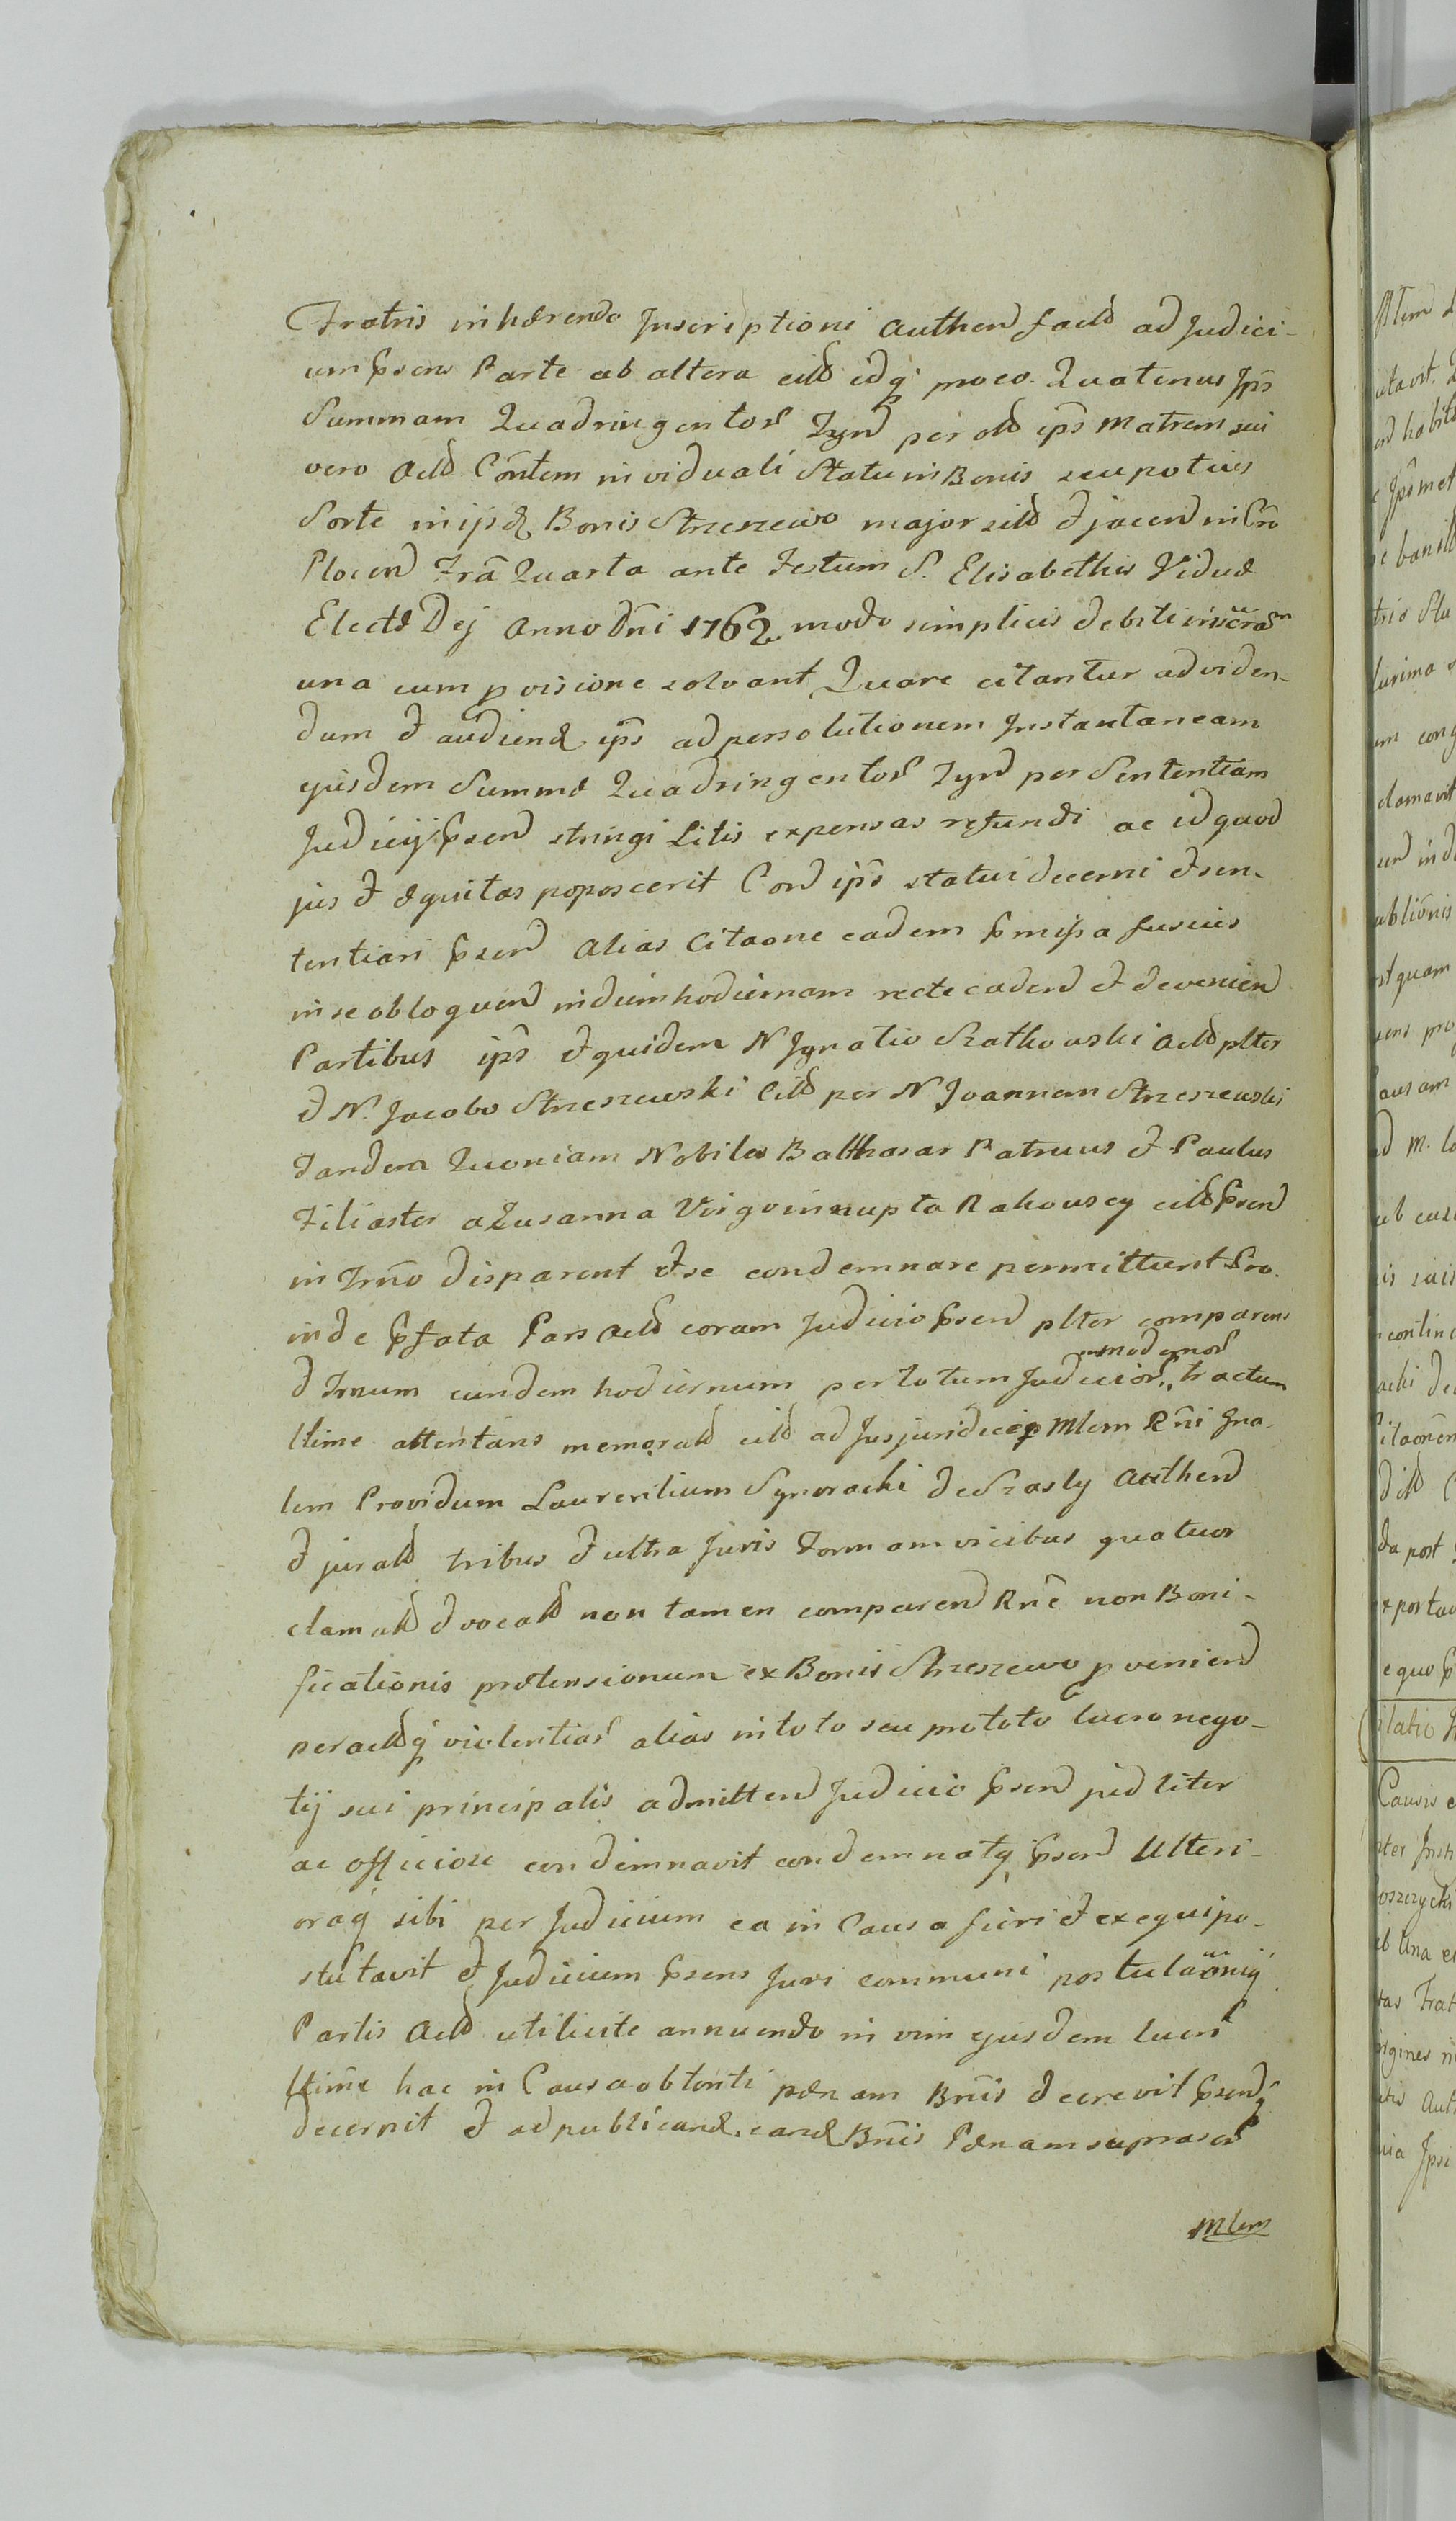 Fratris inhærendo Inscriptioni Authen factæ ad Judici-
um pñsens Parte ab altera citt idq pro eo. Quatenus Ips
Summam Quadringentos Tynf per ott ips Matrem sui
vero Actt Contem in viduali Statu in Bonis seu potius
Sorte in ijsd Bonis Strzeszewo major sitt et jacend in Pro
Plocen Fra Quarta ante Festum S. Elisabethis Viduæ
Electæ Dej Anno Dni 1762 modo simplicis debiti inscram
una cum pvisione solvant Quare citantur ad viden-
dum et audiend ips ad persolutionem Instantaneam
ejusdem Summæ Quadringentos Tynf per Sententiam
Judicij psen stringi Litis expensas refundi ac id quod
jus et æquitas poposcerit Con ips statui decerni et sen-
tentiari psen Alias Citaone eadem pmissa fusius
in se obloquen in diem hodiernam recte caden et devenien
Partibus ips et quidem N Ignatio Szatkowski Actt plter
et N. Jacobo Strzeszewski Citt per N Joannem Strzeszewski
Tandem Quoniam Nobiles Balthasar Patruus et Paulus
Filiaster a Zusanna Virgo innupta Rakowscy citt psen
in Trno disparent et se condemnare permittunt Pro
inde pfata Pars Actt coram Judicio psen plter comparens
et Trnum eundem hodiernum per totum Judicior tractum
modernor
Ultime attentans memoratt citt ad Jus juridice p Mlem Rni Gna-
lem Providum Laurentium Synoracki de Szasty Authen
et juratt tribus et ultra Juris Formam vicibus quatuor
clamatt et vocatt non tamen comparen Rne non Boni-
ficationis prætensionum ex Bonis Strzeszewo pvenien
peractq violentias alias in toto seu pro toto lucro nego-
tij sui principalis admitten Judicio psen judliter
ac officiose condemnavit condemnatq psen Ulteri-
oraq sibi per Judicium ea in Causa fieri et exequi po-
stulavit et Judicium psens Juri communi postulaonisq
Partis Actt utilite annuendo in vim ejusdem lucri
Ultime hac in Causa obtenti pænam Bnis decrevit psenq
decernit et ad publicand eand Bnis Pænam suprascr
Mlem